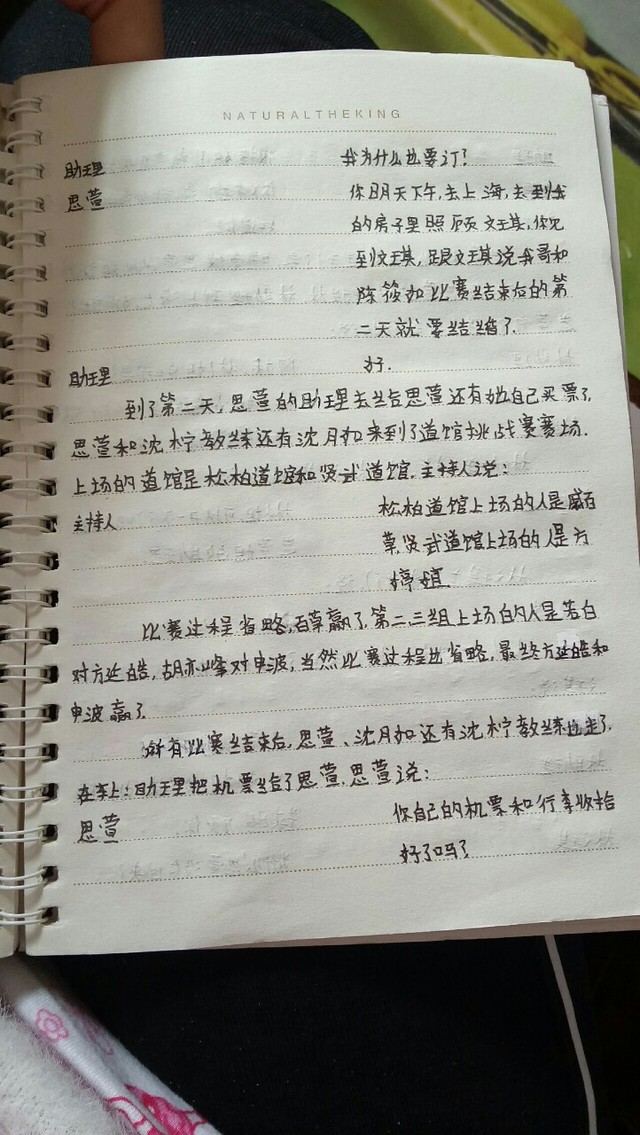 NATURALTHEKING
助理 我为什么也要订?
思萱 你明天下午,去上海,去到我
的房子里照顾文琪,你见
到文琪,跟文琪说我哥和
陈筱如比赛结束后的第
二天就要结婚了.
助理 好.
到了第二天,思萱的助理去给思萱还有她自己买票了,
思萱和沈柠教练还有沈月如来到了道馆挑战赛赛场.
上场的道馆是松柏道馆和贤武道馆.主持人说:
主持人 松柏道馆上场的人是戚百
草,贤武道馆上场的人是方
婷宜.
比赛过程省略,百草赢了,第二、三组上场的人是若白
对方廷皓,胡亦峰对申波,当然比赛过程也省略,最终方廷皓和
申波赢了.
所有比赛结束后,思萱、沈月如还有沈柠教练也走了,
在车上:助理把机票给了思萱.思萱说:
思萱 你自己的机票和行李收拾
好了吗?